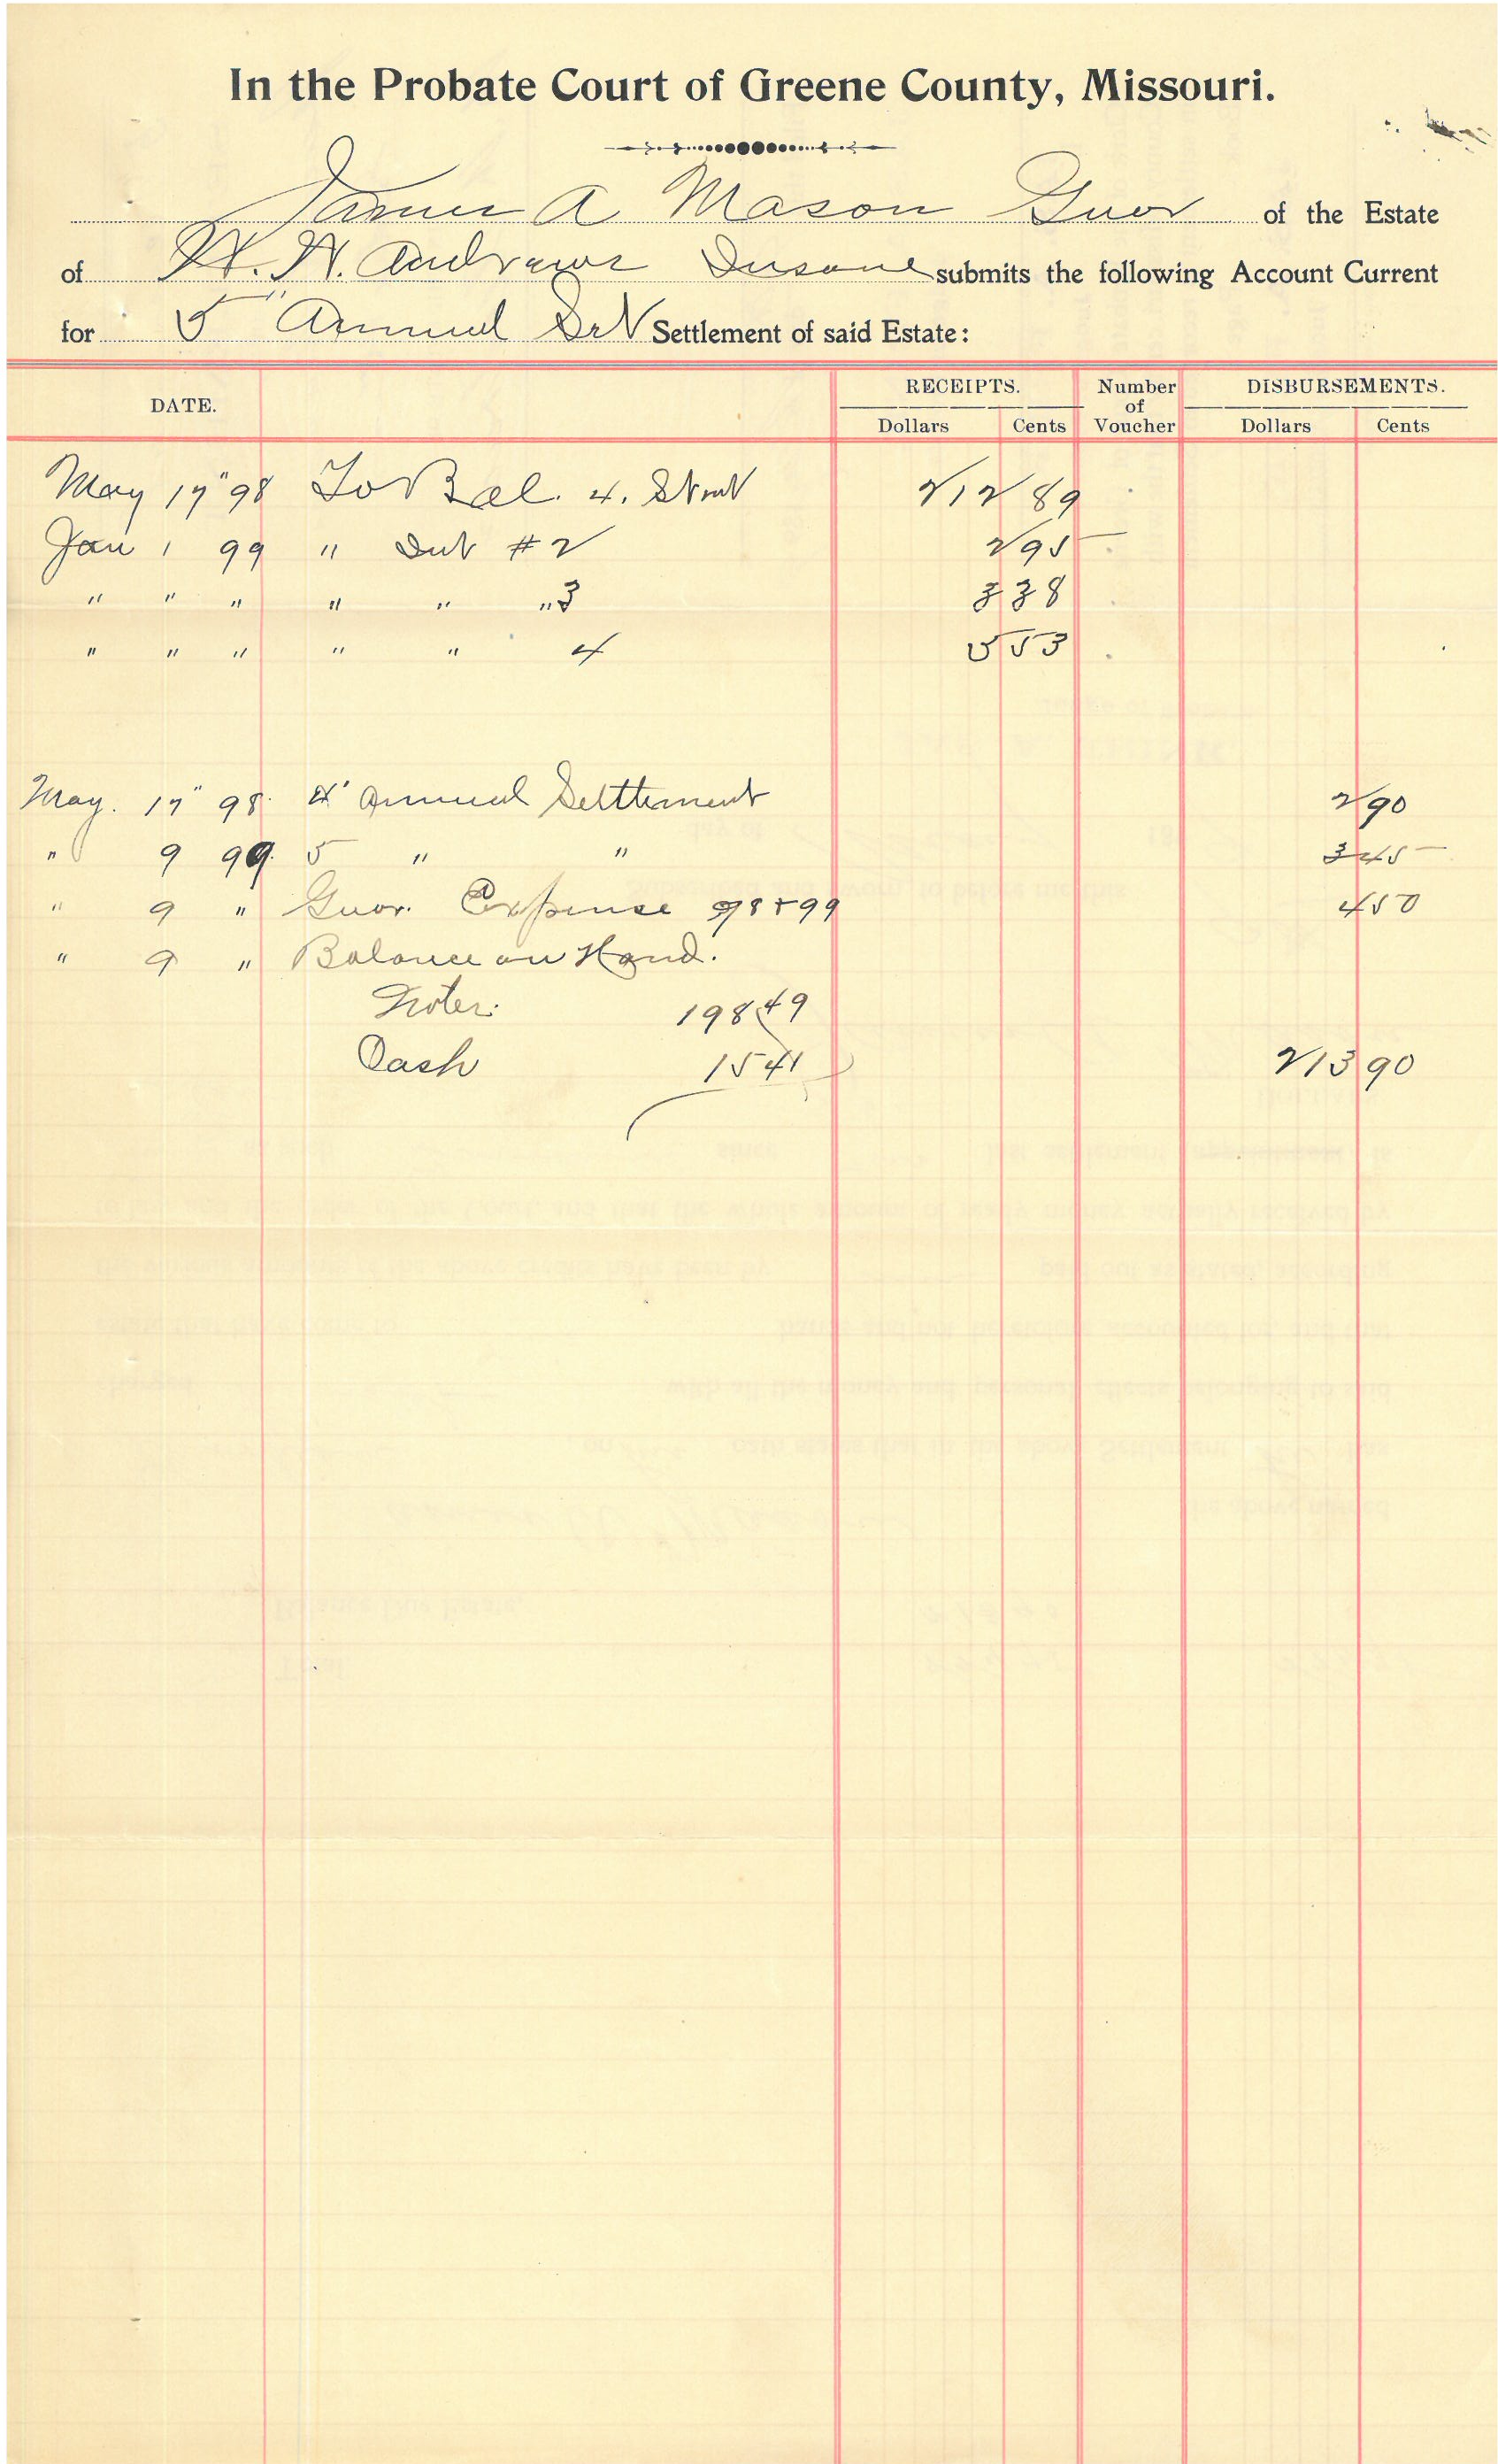 In the Probate Court of Greene County, Missouri.
James A Mason Guar of the Estate
of H. H. Andrews Insane submits the following Account Current
for 5" Annual Set Settlement of said Estate:
DATE. RECEIPTS. Number of Voucher DISBURSEMENTS.
Dollars Cents Dollars Cents
May 17" 98 To Bal. 4. Stmt 212 89
Jan 1 99 " Int # 2 2 95
" " " " " " 3 3 38
" " " " " 4 5 53
May. 17" 98. 4" Annual Settlement 2 90
" 9 99. 5 " " 3 45
" 9 " Guar. Expense 98 + 99 4 50
" 9 " Balance on Hand.
Notes. 198 49
Cash 15 41 213 90